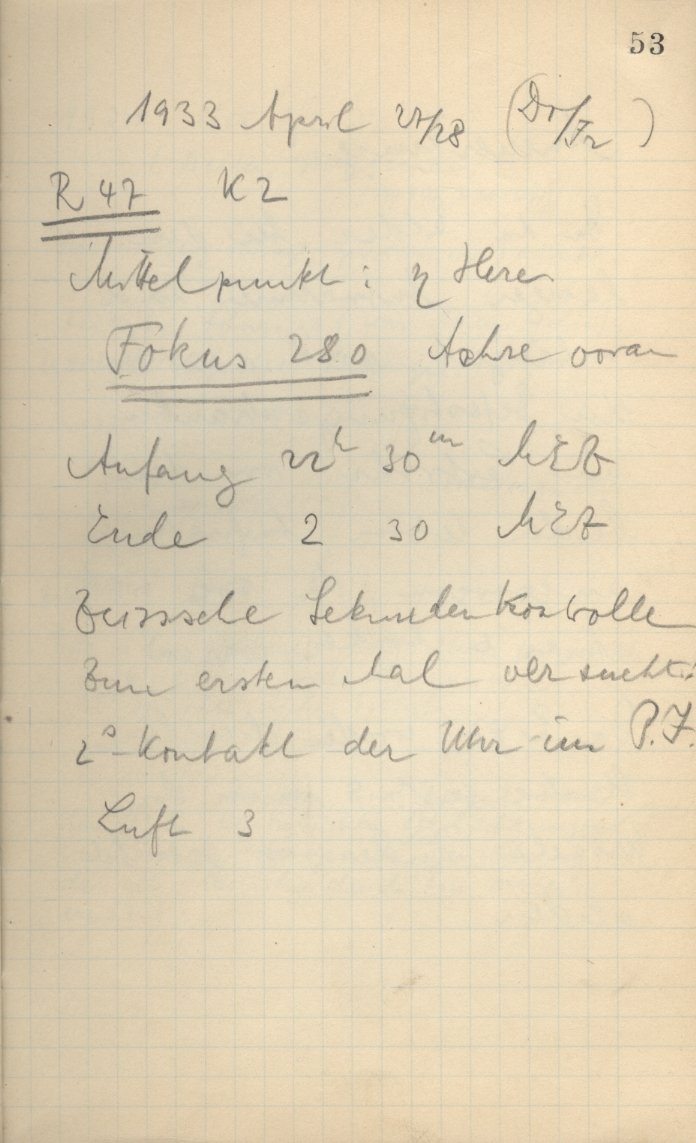 53
1933 April 27/28 (Do/Fr)
R 47 K 2
Mittelpunkt: η Herc
Fokus 280 Achse voran
Anfang 22h 30m MEZ
Ende 2 30 MEZ
Zeisssche Sekundenkontrolle
Zum ersten Mal versucht:
2s-Kontakt der Uhr im P.F.
Luft 3